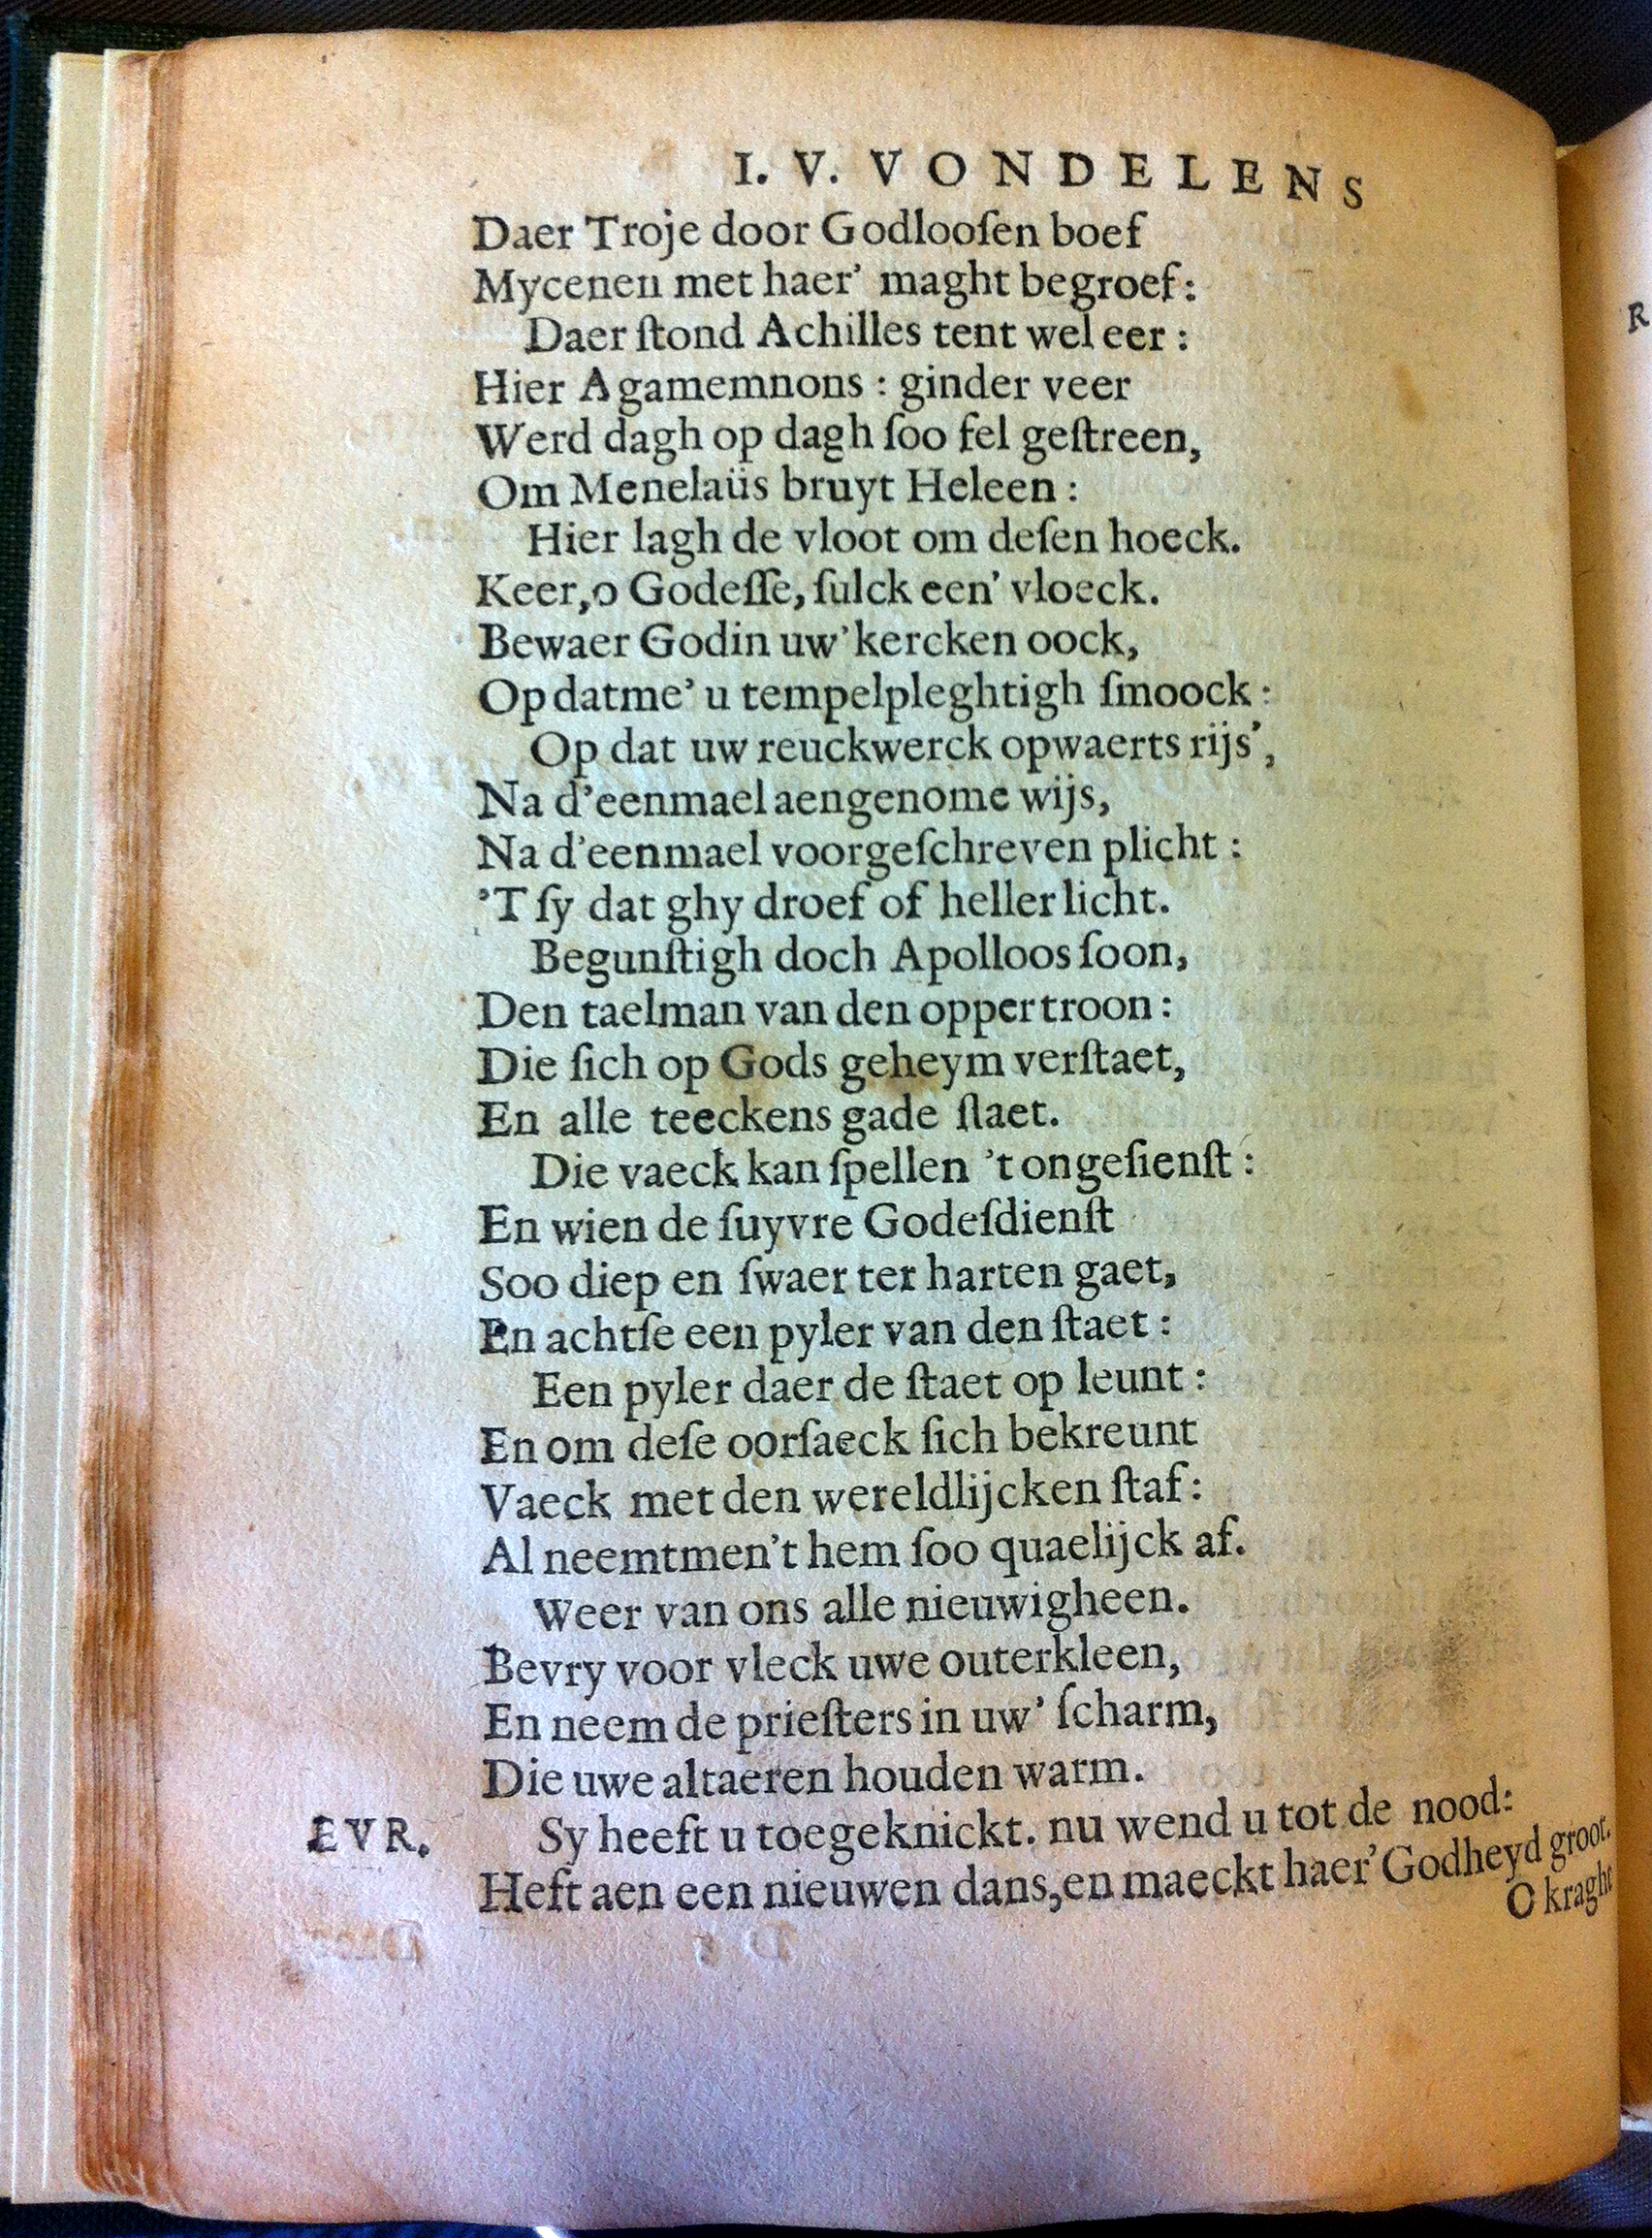 I. V. VONDELENS
Daer Troje door Godlooſen boef
Mycenen met haer' maght begroef:
Daer ſtond Achilles tent wel eer:
Hier Agamemnons: ginder veer
Werd dagh op dagh ſoo fel geſtreen,
Om Menelaüs bruyt Heleen:
Hier lagh de vloot om deſen hoeck.
Keer, o Godeſſe, ſulck een' vloeck.
Bewaer Godin uw' kercken oock,
Op datme' u tempelpleghtigh ſmoock:
Op dat uw reuckwerck opwaerts rijs',
Na d'eenmael aengenome wijs,
Na d'eenmael voorgeſchreven plicht:
'T ſy dat ghy droef of heller licht.
Begunſtigh doch Apolloos ſoon,
Den taelman van den oppertroon:
Die ſich op Gods geheym verſtaet,
En alle teeckens gade ſlaet.
Die vaeck kan ſpellen 't ongeſienſt:
En wien de ſuyvre Godeſdienſt
Soo diep en ſwaer ter harten gaet,
En achtſe een pyler van den ſtaet:
Een pyler daer de ſtaet op leunt:
En om deſe oorſaeck ſich bekreunt
Vaeck met den wereldlijcken ſtaf:
Al neemtmen't hem ſoo quaelijck af.
Weer van ons alle nieuwigheen.
Bevry voor vleck uwe outerkleen,
En neem de prieſters in uw' ſcharm,
Die uwe altaeren houden warm.
EVR. Sy heeft u toegeknickt. nu wend u tot de nood:
Heft aen een nieuwen dans, en maeckt haer' Godheyd groot.
O kraght
R